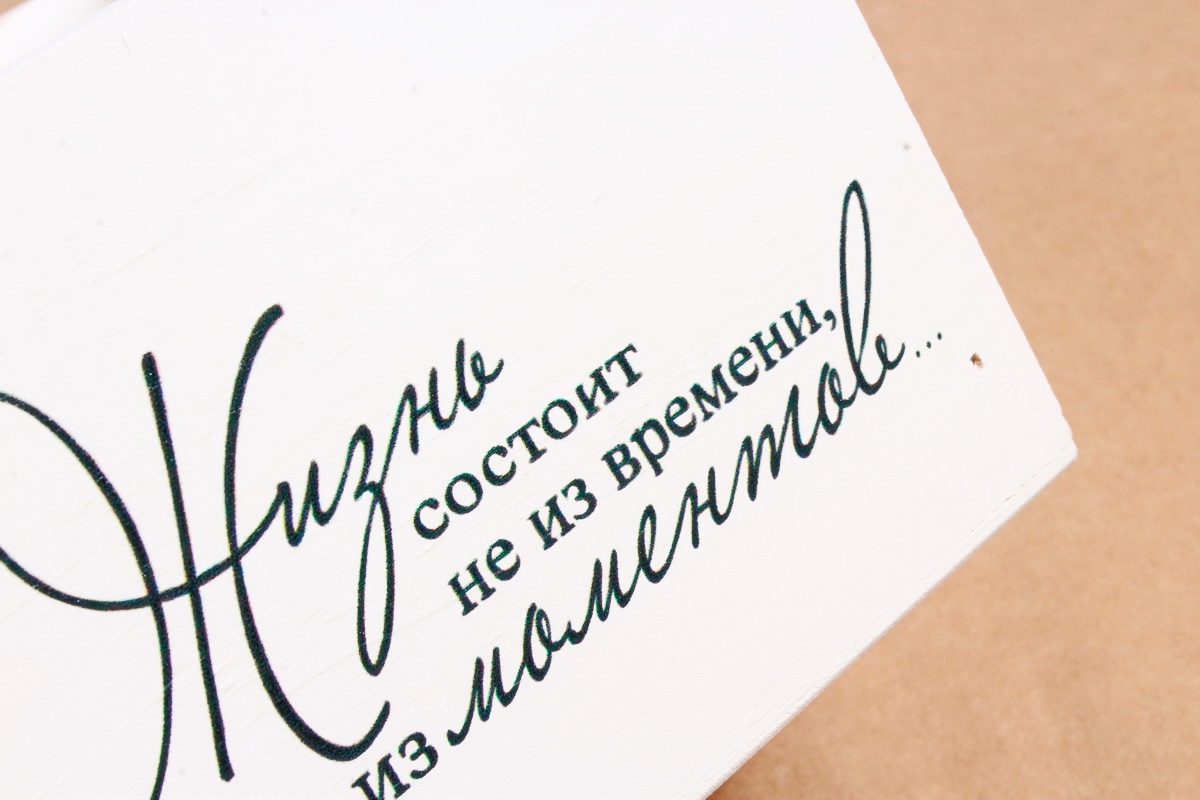 Жизнь
состоит
не из времени,
из моментов...